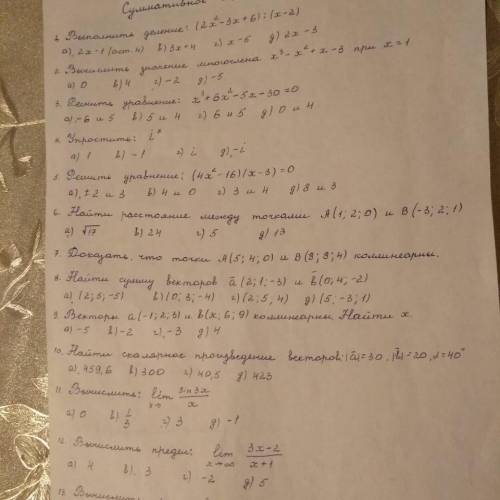 Суммативное
1. Выполнить деление: (2x²-3x+6):(x-2)
а) 2x-1 (ост. 4) в) 3x+4 г) x-5 д) 2x-3
2. Вычислить значение многочлена x³-x²+x-3 при x=1
а) 0 в) 4 г) -2 д) -5
3. Решить уравнение: x³+6x²-5x-30=0
а) -6 и 5 в) 5 и 4 г) 6 и 5 д) 0 и 4
4. Упростить: i
а) 1 в) -1 г) i д) -i
5. Решить уравнение: (4x²-16)(x-3)=0
а) ±2 и 3 в) 4 и 0 г) 3 и 4 д) 8 и 3
6. Найти расстояние между точками A(1; 2; 0) и B(-3; 2; 1)
а) √17 в) 24 г) 5 д) 13
7. Доказать, что точки A(5; 4; 0) и B(8; 3; 4) коллинеарны.
8. Найти сумму векторов a(2; 1; -3) и b(0; 4; -2)
а) (2; 5; -5) в) (0; 3; -4) г) (2; 5; 4) д) (5; -3; 1)
9. Векторы a(-1; 2; 3) и b(x; 6; 9) коллинеарны. Найти x.
а) -5 в) -2 г) -3 д) 4
10. Найти скалярное произведение векторов: |a|=30, |b|=20, α=40°
а) 459,6 в) 300 г) 40,5 д) 423
11. Вычислить: lim sin3x/x
а) 0 в) 1/3 г) 3 д) -1
12. Вычислить предел: lim x→∞ 3x-2/x+1
а) 4 в) 3 г) -2 д) 5
13. Вычислить